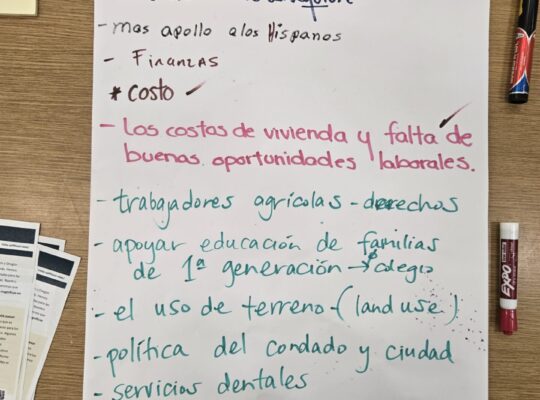 - mas apollo a los Hispanos
- Finanzas
* costo ✓
- Los costas de vivienda y falta de
buenas oportunidades laborales.
- trabajadores agrícolas - derechos
- apoyar educación de familias
de 1ª generación → colegio
- el uso de terreno - (land use)
- política del condado y ciudad
- servicios dentales
EXPO